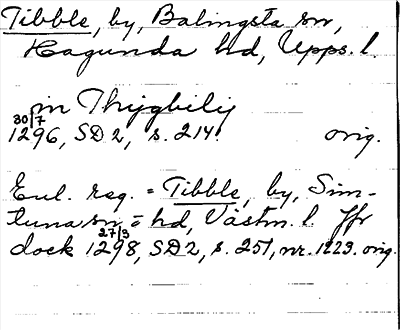 Tibble, by, Balingsta sn,
Hagunda hd, Upps. l.
in Thygbilij
30/7
1296, SD 2, s. 214. orig.
Enl. reg. = Tibble, by, Sim-
tuna sn o hd, Västm. l. Jfr
27/3
dock 1298, SD 2, s. 251, nr. 1223. orig.